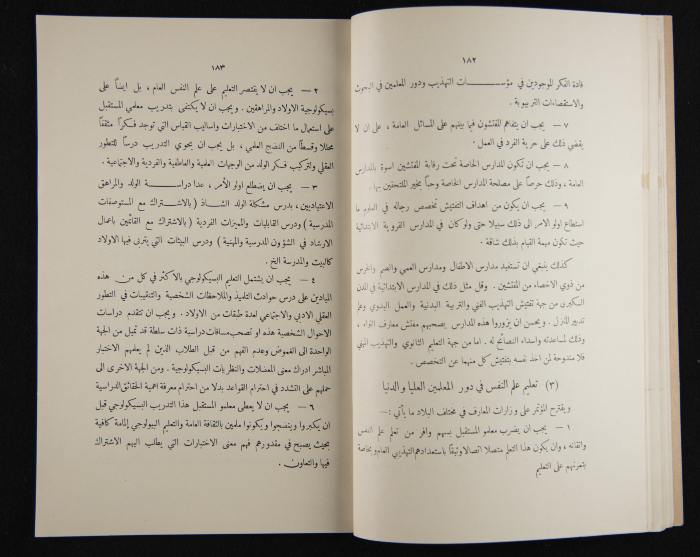 ١٨٢
قادة الفكر الموجودين في مؤسسات التهذيب ودور المعلمين في البحوث
والاستقصاءات التربيوية .
٧ — يجب ان يتفاهم المفتشون فيما بينهم على المسائل العامة ، على ان لا
يقضي ذلك على حرية الفرد في العمل .
٨ — يجب ان تكون المدارس الخاصة تحت رقابة المفتشين اسوة بالمدارس
العامة ، وذلك حرصاً على مصلحة المدارس الخاصة وحباً بخير الملتحقين بها .
٩ — يجب ان يكون من اهداف التفتيش تخصص رجاله في العلوم ما
استطاع اولو الامر الى ذلك سبيلا حتى ولو كان في المدارس القروية الابتدائية
حيث تكون مهمة القيام بذلك شاقة .
كذلك ينبغي ان تستفيد مدارس الاطفال ومدارس العمي والصم والخرس
من ذوي الاخصاء من المفتشين . وقل مثل ذلك في المدارس الابتدائية في المدن
الكبرى من جهة تفتيش التهذيب الفني والتربية البدنية والعمل اليدوي وعلم
تدبير المنزل . ويحسن ان يزوروا هذه المدارس يصحبهم مفتش معارف اللواء ،
وذلك لمساعدته واسداء النصائح له . اما من جهة التعليم الثانوي والتهذيب المهني
فلا مندوحة لمن اخذ نفسه بتفتيش كل منهما عن التخصص .
(٣) تعليم علم النفس في دور المعلمين العليا والدنيا
ويقترح المؤتمر على وزارات المعارف في مختلف البلاد ما يأتي :—
١ — يجب ان يضرب معلمو المستقبل بسهم وافر من تعلم علم النفس
واتقانه ، وان يكون هذا التعلم متصلا اتصالا وثيقاً باستعدادهم التهذيبي العام وبخاصة
بتمرنهم على التعليم
١٨٣
٢ — يجب ان لا يقتصر التعليم على علم النفس العام ، بل ايضاً على
بسيكولوجية الاولاد والمراهقين . ويجب ان لا يكتفى بتدريب معلمي المستقبل
على استعمال ما اختلف من الاختبارات واساليب القياس التي توجد فكراً مثقفاً
محللا وقسطاً من النضج العلمي ، بل يجب ان يحوي التدريب درساً للتطور
العقلي ولتركيب فكر الولد من الوجهات العلمية والعاطفية والفردية والاجتماعية .
٣ — يجب ان يضطلع اولو الأمر ، عدا دراسة الولد والمراهق
الاعتياديين ، بدرس مشكلة الولد الشاذ ( بالاشتراك مع المستوصفات
المدرسية ) ودرس القابليات والميزات الفردية ( بالاشتراك مع القائمين باعمال
الارشاد في الشؤون المدرسية والمهنية ) ودرس البيئات التي يتربى فيها الاولاد
كالبيت والمدرسة الخ .
٤ — يجب ان يشتمل التعليم البسيكولوجي بالأكثر في كل من هذه
الميادين على درس حوادث التلميذ والملاحظات الشخصية والتنقيبات في التطور
العقلي الادبي والاجتماعي لعدة طبقات من الاولاد . ويجب ان تتقدم دراسات
الاحوال الشخصية هذه او تصحب مسافات دراسية ذات سلطة قد تميل من الجهة
الواحدة الى الغموض وعدم الفهم من قبل الطلاب الذين لم يعلمهم الاختبار
المباشر ادراك معنى المعضلات والنظريات البسيكولوجية . ومن الجهة الاخرى الى
حملهم على التشدد في احترام القواعد بدلا من احترام معرفة اهمية الحقائق الدراسية
٦ — يجب ان لا يعطى معلمو المستقبل هذا التدريب البسيكولوجي قبل
ان يكبروا وينضجوا ويكونوا ملمين بالثقافة العامة والتعليم البيولوجي إلمامة كافية
بحيث يصبح في مقدورهم فهم معنى الاختبارات التي يطلب اليهم الاشتراك
فيها والتعاون .